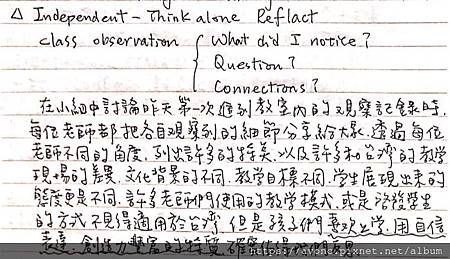 △ Independent - Think alone Reflact
class observation { What did I notice?
Question?
Connections?
在小組中討論昨天第一次進到教室內的觀察記錄時,
每位老師都把各自觀察到的細節分享給大家. 透過每位
老師不同的角度, 列出許多的特美, 以及許多和台灣的教學
現場的差異. 文化背景的不同. 教學目標不同. 學生展現出來的
態度更是不同. 許多老師們使用的教學模式, 或是啟發學生
的方式不見得適用於台灣, 但是孩子們喜歡上學, 用自信
表達. 創造力豐富的特質, 確實
https://avonc.pixnet.net/album